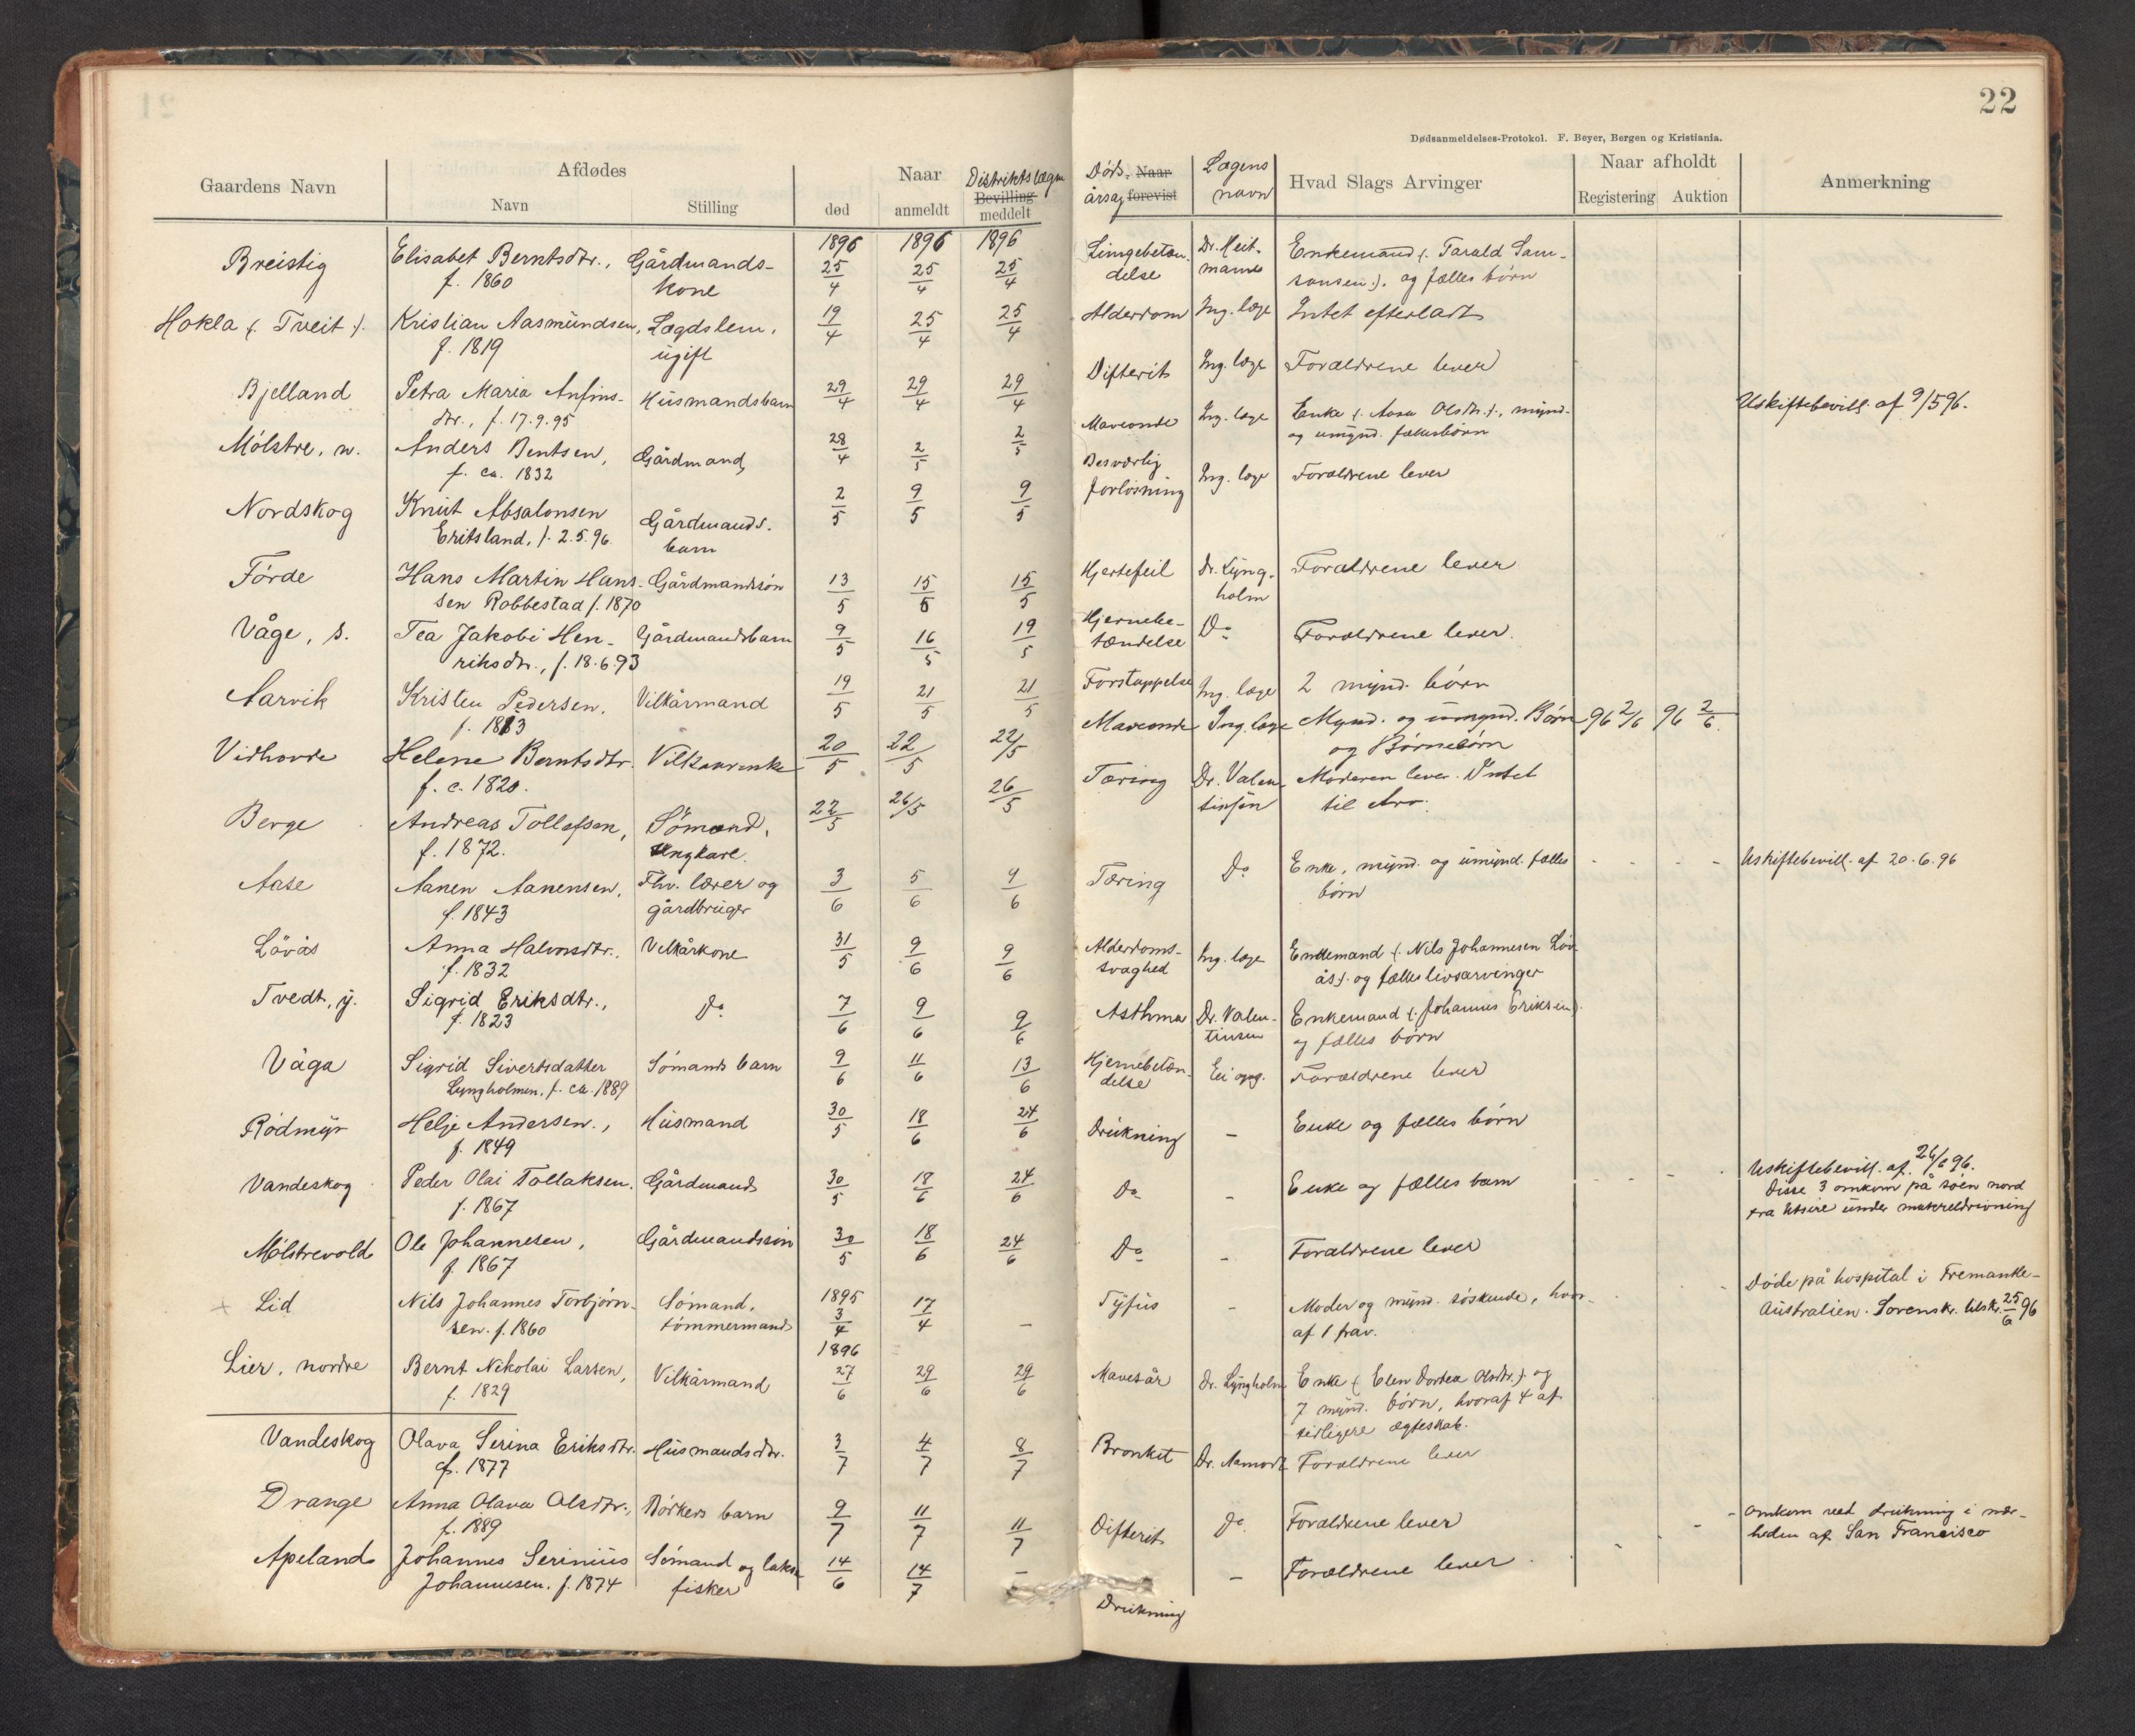 22
Dødsanmeldelses-Protokol. F. Beyer, Bergen og Kristiania.
Gaardens Navn
Afdødes
Navn
Stilling
Naar
død
anmeldt
Distriktslægen
Bevilling
meddelt
Døds-
årsag
Naar
forevist
Lægens
navn
Hvad Slags Arvinger
Naar afholdt
Registering
Auktion
Anmerkning
1896 1896 1896
Breistig Elisabet Berntsdtr., Gårdmands- 25/4 25/4 25/4 Lungebetæn- Dr. Heit- Enkemand (: Tarald Sam-
f. 1860 kone delse mann sonsen :). og fælles børn
Hokla (: Tveit :). Kristian Aasmundsen, Lægdslem, 19/4 25/4 25/4 Alderdom Ing. læge Intet efterladt
f. 1819 ugift
Bjelland Petra Maria Anfins- Husmandsbarn 29/4 29/4 29/4 Difterit Ing. læge Forældrene lever
dtr., f. 17.9.95
Mølstre, n. Anders Bentsen, Gårdmand 28/4 2/5 2/5 Maveonde Ing. læge Enke (: Aasa Olsdtr. :), mynd. Uskiftebevill. af 9/5 96.
f. ca. 1832 og umynd. fællesbørn
Nordskog Knut Absalonsen Gårdmands- 2/5 9/5 9/5 Besværlig Ing. læge Forældrene lever
Eritsland, f. 2.5.96. barn forløsning
Førde Hans Martin Hans- Gårdmandssøn 13/5 15/5 15/5 Hjertefeil Dr. Lyng- Forældrene lever
sen Robbestad f. 1870 holm
Våge, s. Tea Jakobi Hen- Gårdmandsbarn 9/5 16/5 19/5 Hjernebe- Do Forældrene lever.
riksdtr., f. 18.6.93 tændelse
Aarvik Kristen Pedersen, Vilkårmand 19/5 21/5 21/5 Forstoppelse Ing. læge 2 mynd. børn
f. 1813
Vidhovde Helene Berntsdtr. Vilkaarenke 20/5 22/5 22/5 Maveonde Ing læge Mynd. og umynd. Børn 96 2/6 96 2/6.
f. c. 1820. og Børnebørn
Berge Andreas Tollefsen, Sömand, 22/5 26/5 26/5 Tæring Dr. Valen- Moderen lever. Intet
f. 1872. Ungkarl. tinsen til Arv.
Aase Aanen Aanensen, Fhv. lærer og 3/6 5/6 9/6 Tæring Do Enke, mynd. og umynd. fælles Uskiftebevill. af 20.6.96
f. 1843 gårdbruger børn
Lövås Anna Halvorsdtr. Vilkårkone 31/5 9/6 9/6 Alderdoms- Ing. læge Enkemand (: Nils Johannesen Löv-
f. 1832 svaghed ås :). og fælles livsarvinger
Tvedt, y. Sigrid Eriksdtr., Do 7/6 9/6 9/6 Asthma Dr. Valen- Enkemand (: Johannes Eriksen :).
f. 1823 tinsen og fælles børn
Våga Sigrid Sivertsdatter Sømands barn 9/6 11/6 13/6 Hjernebetæn- Ei opg. Forældrene lever
Lyngholmen, f. ca. 1889 delse
Rødmyr Helje Andersen, Husmand 30/5 18/6 24/6 Drukning – Enke og fælles børn
f. 1849
Vandeskog Peder Olai Tollaksen. Gårdmand 30/5 18/6 24/6 Do – Enke og fælles barn Uskiftebevill. af 26/6 96.
f. 1867 Disse 3 omkom på søen nord
fra Utsire under makreldrivning
Mølstrevold Ole Johannesen, Gårdmandssøn 30/5 18/6 24/6 Do – Forældrene lever
f. 1867
1895
+ Lid Nils Johannes Torbjørn- Sømand, 3/4 17/4 – Tyfus – Moder og mynd. søskende, hvor- Døde på hospital i Fremantle-
sen. f. 1860 tømmermand af 1 frav. Australien. Sorensk. tilskr. 25/6 96
1896
Lier, nordre Bernt Nikolai Larsen, Vilkårmand 27/6 29/6 29/6 Mavesår Dr. Lyngholm Enke (: Elen Dortea Olsdtr. :) og
f. 1829 7 mynd. børn, hvoraf 4 af
tidligere ægteskab.
Vandeskog Olava Serina Eriksdtr. Husmandsdtr. 3/7 4/7 8/7 Bronkit Dr. Aamodt Forældrene lever
f. 1877
Drange Anna Olava Olsdtr., Bødkers barn 9/7 11/7 11/7 Difterit Do Forældrene lever
f. 1889
Apeland Johannes Serinius Sømand og lakse- 14/6 14/7 – Drukning – Forældrene lever omkom ved drukning i nær-
Johannesen. f. 1874 fisker heden af San Francisco